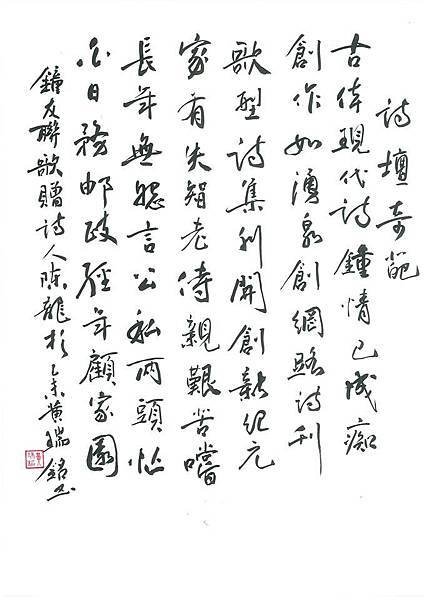 詩壇奇葩
古体現代詩鍾情已成痴
創作如湧泉創網路詩刊
歌型詩集刊開創新紀元
家有失智老侍親艱苦嚐
長年無怨言公私兩頭忙
白日務邮政經年顧家園
鐘友聯歌贈詩人陈龍杉乙未黃瑞銘書